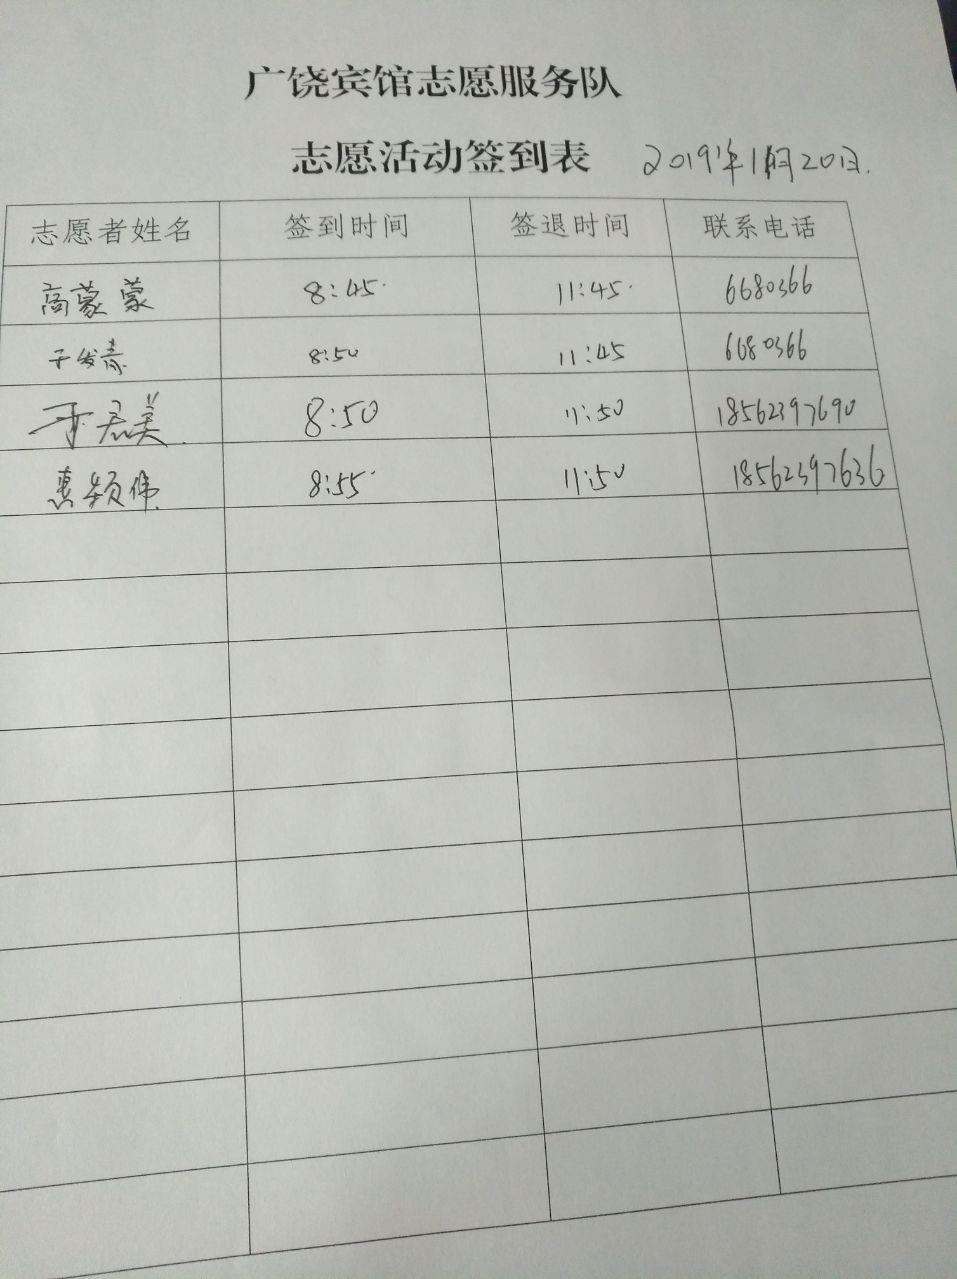 广饶宾馆志愿服务队
志愿活动签到表 2019年1月20日.
志愿者姓名 签到时间 签退时间 联系电话
高蒙蒙 8:45 11:45 6680366
于发青 8:50 11:45 6680366
于君美 8:50 11:50 18562397690
惠颖伟 8:55 11:50 18562397636